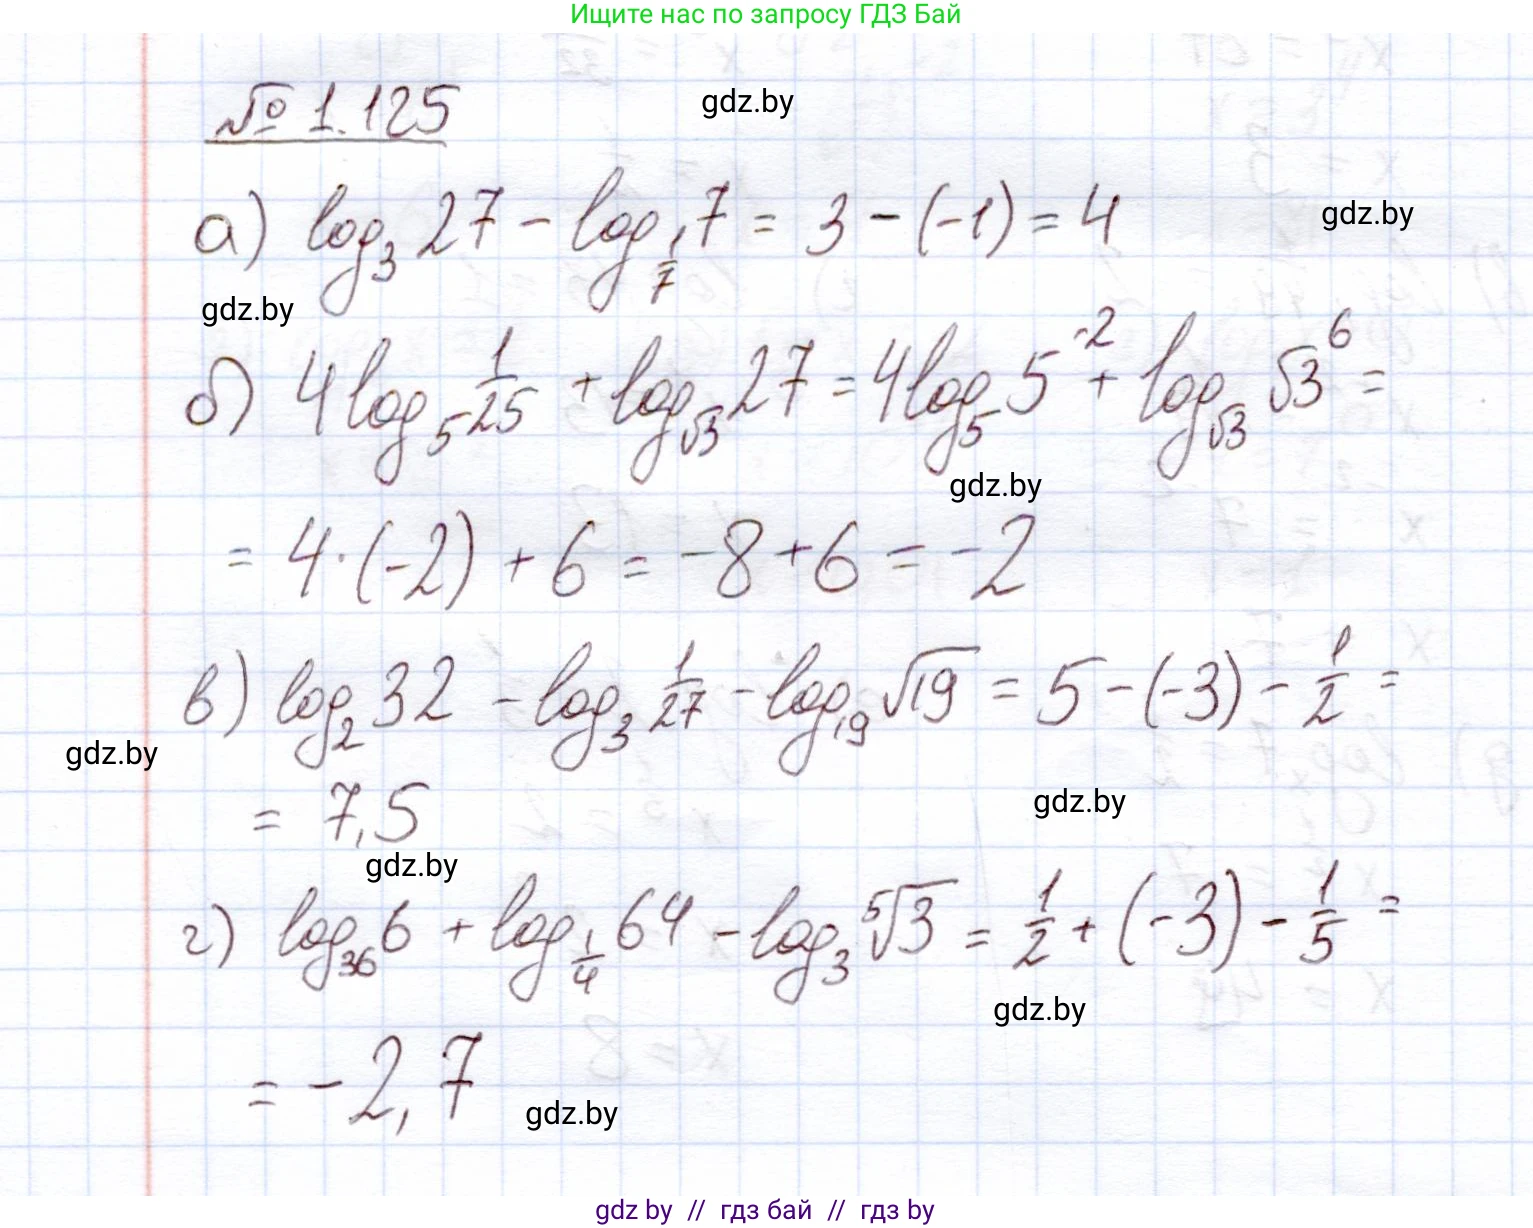 Ищите нас по запросу ГДЗ Бай
№ 1.125
gdz.by
а) log₃ 27 − log_{1/7} 7 = 3 − (−1) = 4
gdz.by
gdz.by
б) 4 log₅ 1/25 + log_{√3} 27 = 4 log₅ 5⁻² + log_{√3} √3⁶ =
gdz.by
= 4·(−2) + 6 = −8 + 6 = −2
в) log₂ 32 − log₃ 1/27 − log₁₉ √19 = 5 − (−3) − 1/2 =
gdz.by
= 7,5
gdz.by
gdz.by
г) log₃₆ 6 + log_{1/4} 64 − log₃ ⁵√3 = 1/2 + (−3) − 1/5 =
gdz.by
= −2,7
gdz.by
gdz by // гдз бай // гдз by